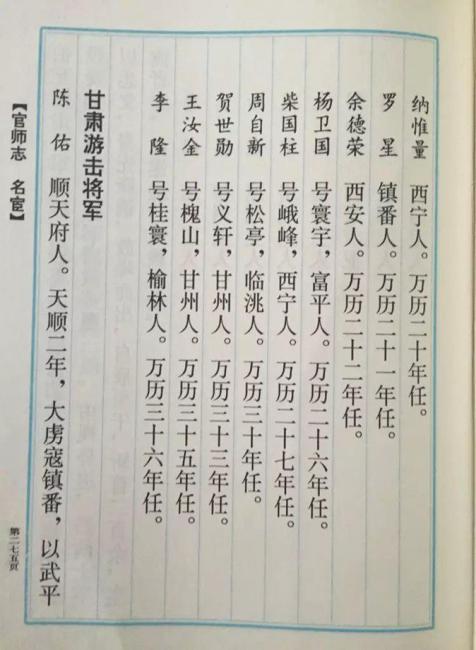 纳惟量 西宁人。万历二十年任。
罗 星 镇番人。万历二十一年任。
余德荣 西安人。万历二十二年任。
杨卫国 号寰宇，富平人。万历二十六年任。
柴国柱 号峨峰，西宁人。万历二十七年任。
周自新 号松亭，临洮人。万历三十年任。
贺世勋 号义轩，甘州人。万历三十三年任。
王汝金 号槐山，甘州人。万历三十五年任。
李 隆 号桂寰，榆林人。万历三十六年任。
甘肃游击将军
陈 佑 顺天府人。天顺二年，大虏寇镇番，以武平
【官师志 名宦】
第二七五页